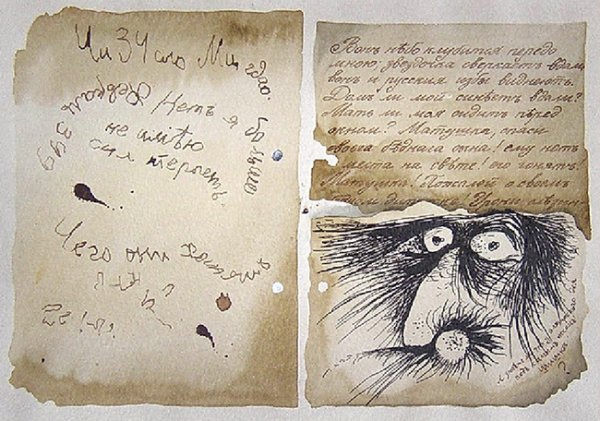 Чи 34 сло Мц гдао.
Февраль 349
Нетъ я больше
не имѣю
силъ терпеть.
Чего они хотятъ
Вонъ небо клубится передо
мною; звездочка сверкаетъ вдали
вонъ и русския избы виднеютъ.
Домъ ли мой синеетъ вдали?
Мать ли моя сидитъ перед
окномъ? Матушка, спаси
твоего беднаго сына! ему нетъ
места на свѣте! его гонятъ!
Матушка! Пожалей о своемъ
подъ самымъ носомъ
шишка
?